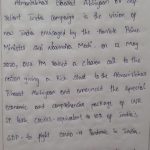 Atmanirbhar Bharat Abhiyan or Self
reliant India campaign is the vision of
new India envisaged by the Honble Prime
Minister Shri Narendra Modi. on 12 May
2020, our PM raised a clarion call to the
nation giving a kick start to the Atmanirbhar
Bharat Abhiyan and announced the Special
economic and comprehensive package of INR
20 lakh crores equivalent to 10% of India's
GDP - to fight COVID-19 Pandemic in India.